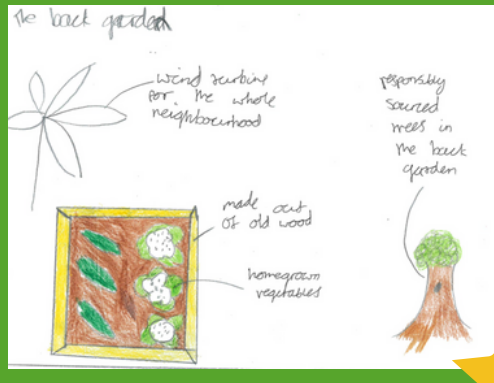 The back garden
wind turbine
for the whole
neighbourhood
responsibly
sourced
trees in
the back
garden
made out
of old wood
homegrown
vegetables